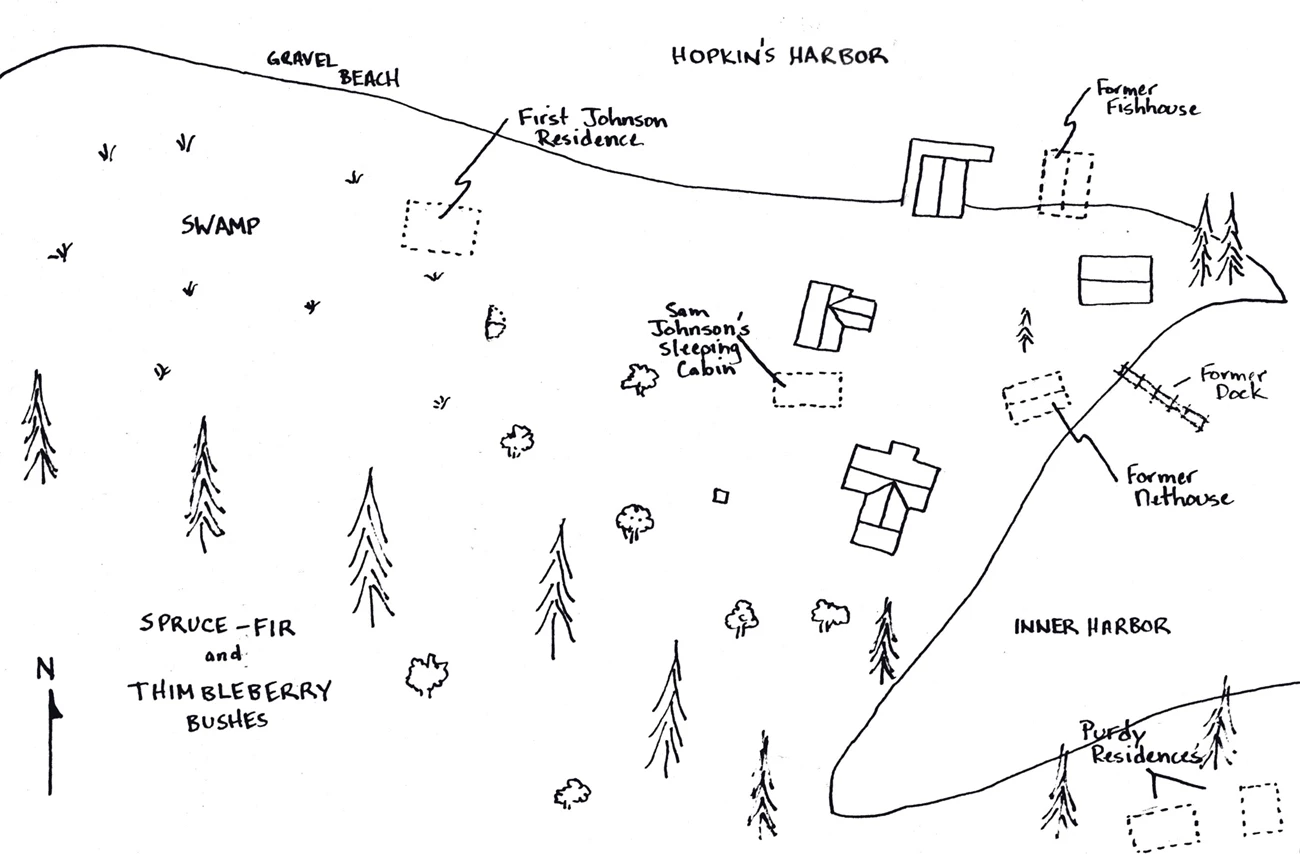 GRAVEL
BEACH
HOPKIN'S HARBOR
Former
Fishhouse
First Johnson
Residence
SWAMP
Sam
Johnson's
Sleeping
Cabin
Former
Dock
Former
Nethouse
SPRUCE-FIR
and
THIMBLEBERRY
BUSHES
N
INNER HARBOR
Purdy
Residences